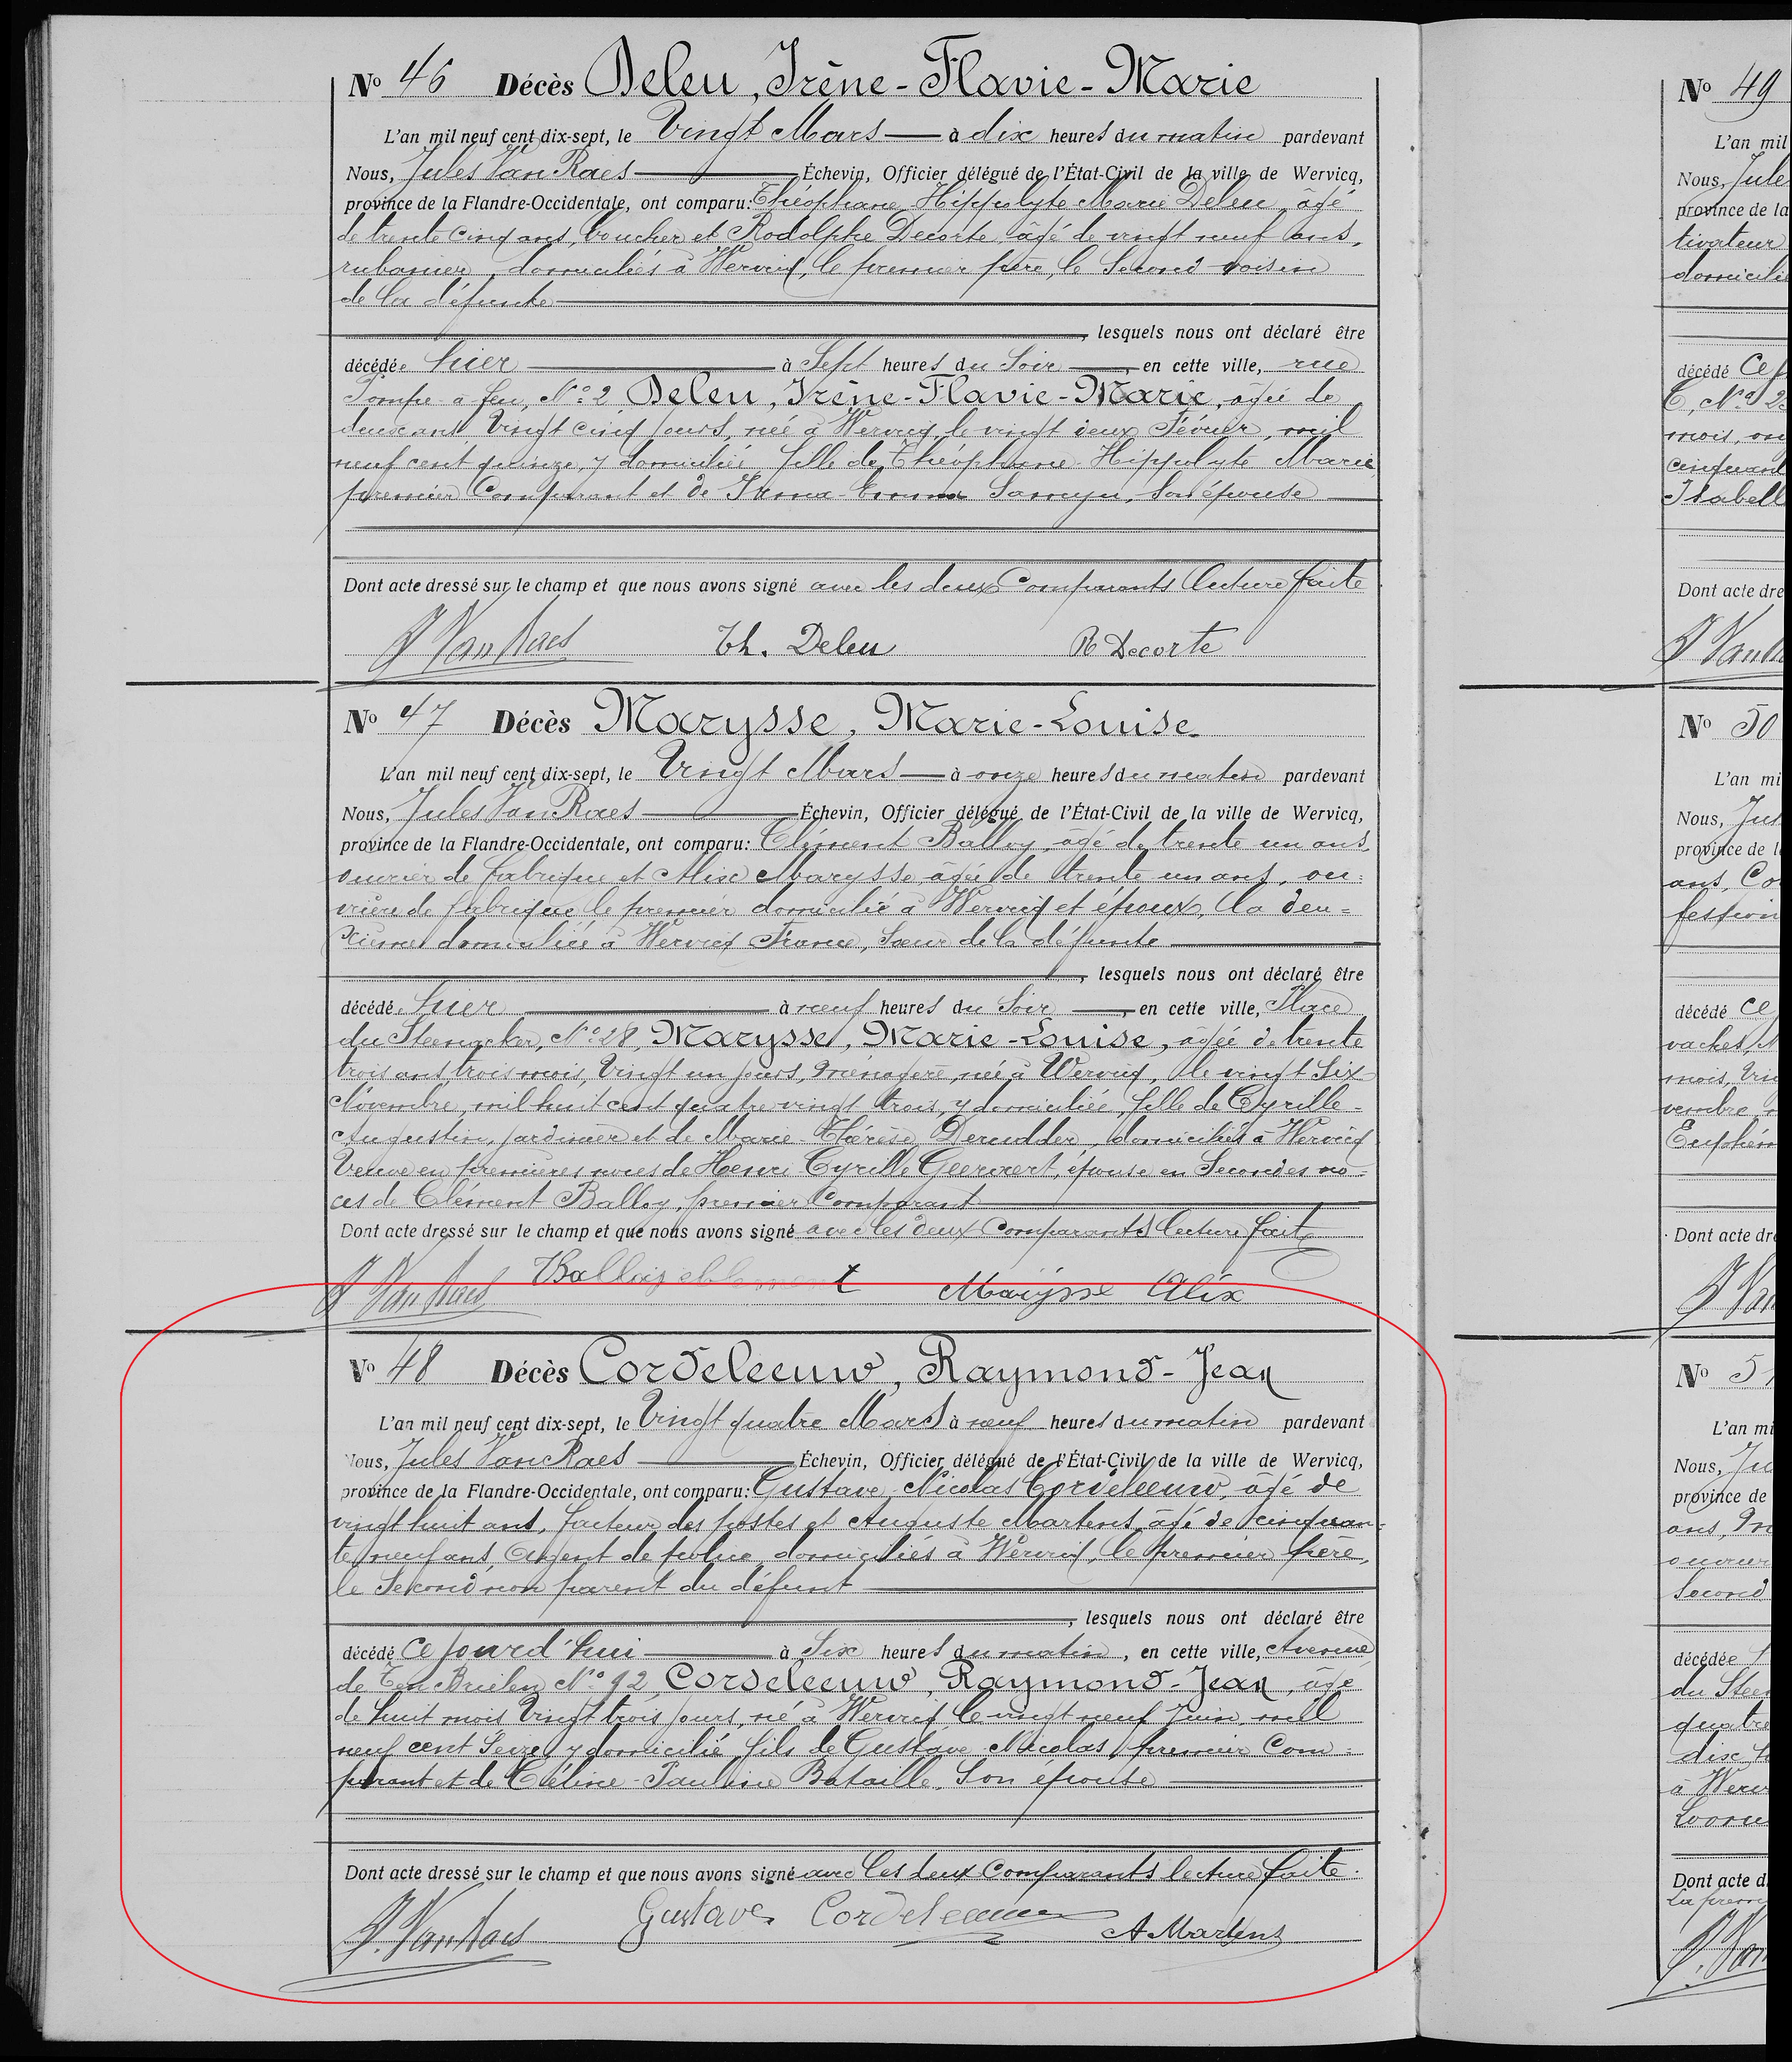 Nº 46 Décès Deleu, Irène-Flavie-Marie
L'an mil neuf cent dix-sept, le Vingt Mars à dix heures du matin pardevant
Nous, Jules Van Raes Échevin, Officier délégué de l'État-Civil de la ville de Wervicq,
province de la Flandre-Occidentale, ont comparu: Théophane-Hippolyte-Marie Deleu, âgé
de trente cinq ans, boucher et Rodolphe Decorte, âgé de vingt neuf ans,
rubanier, domiciliés à Wervicq, le premier père, le second voisin
de la défunte
, lesquels nous ont déclaré être
décédée hier à Sept heures du Soir, en cette ville, rue
Pompe à feu, Nº 2, Deleu, Irène-Flavie-Marie, âgée de
deux ans Vingt cinq jours, née à Wervicq, le vingt deux Février, mil
neuf cent quinze, y domiciliée, fille de Théophane-Hippolyte Marie,
premier Comparant et de Irma-Emma Samyn, Son épouse
Dont acte dressé sur le champ et que nous avons signé avec les deux Comparants lecture faite
J Van Raes Th. Deleu R Decorte
Nº 47 Décès Marysse, Marie-Louise.
L'an mil neuf cent dix-sept, le Vingt Mars à onze heures du matin pardevant
Nous, Jules Van Raes Échevin, Officier délégué de l'État-Civil de la ville de Wervicq,
province de la Flandre-Occidentale, ont comparu: Clément Balloy, âgé de trente un ans,
ouvrier de fabrique et Alix Marysse, âgée de trente un ans, ou=
vrière de fabrique, le premier domicilié à Wervicq et époux, la deu=
xième domiciliée à Wervicq France, Sœur de la défunte
, lesquels nous ont déclaré être
décédé hier à neuf heures du Soir, en cette ville, Place
du Steenacker, Nº 28, Marysse, Marie-Louise, âgée de trente
trois ans, trois mois, Vingt un jours, ménagère, née à Wervicq, le vingt Six
Novembre, mil huit cent quatre vingt trois, y domiciliée, fille de Cyrille-
Augustin, jardinier et de Marie-Thérèse Derudder, domiciliés à Wervicq
Veuve en premières noces de Henri-Cyrille Geervert, épouse en Secondes no=
ces de Clément Balloy, premier Comparant
Dont acte dressé sur le champ et que nous avons signé avec les deux Comparants lecture faite
J Van Raes Balloy clement Marÿsse Alix
Nº 48 Décès Cordeleeuw, Raymond-Jean
L'an mil neuf cent dix-sept, le Vingt quatre Mars à neuf heures du matin pardevant
Nous, Jules Van Raes Échevin, Officier délégué de l'État-Civil de la ville de Wervicq,
province de la Flandre-Occidentale, ont comparu: Gustave-Nicolas Cordeleeuw, âgé de
vingt huit ans, facteur des postes et Auguste Martens, âgé de cinquan=
te neuf ans, Agent de police, domiciliés à Wervicq, le premier père,
le Second non parent du défunt
, lesquels nous ont déclaré être
décédé ce jourd'hui à Six heures du matin, en cette ville, Avenue
de Ten Brielen Nº 92, Cordeleeuw, Raymond-Jean, âgé
de huit mois Vingt trois jours, né à Wervicq le vingt neuf Juin, mil
neuf cent Seize, y domicilié, fils de Gustave Nicolas, premier Com=
parant et de Céline-Pauline Bataille, Son épouse
Dont acte dressé sur le champ et que nous avons signé avec les deux Comparants lecture faite.
J. Van Raes Gustave Cordeleeuw A. Martens
Nº 49
L'an mil
Nous, Jule
province de la
tivateur
domicilié
décédé ce j
mois, on
cinquant
Isabell
Dont acte dre
J Van R
Nº 50
L'an mi
Nous, Jul
province de l
ans, Co
fession
décédé ce j
vaches, N
mois, Vin
vembre, m
Euphém
Dont acte dre
J Van
Nº 5
L'an mi
Nous, Ju
province de
ans, M
ouvrier
Second
décédée
du Stee
quatre
dix h
à Werv
Dont acte d
La prem
J. Van